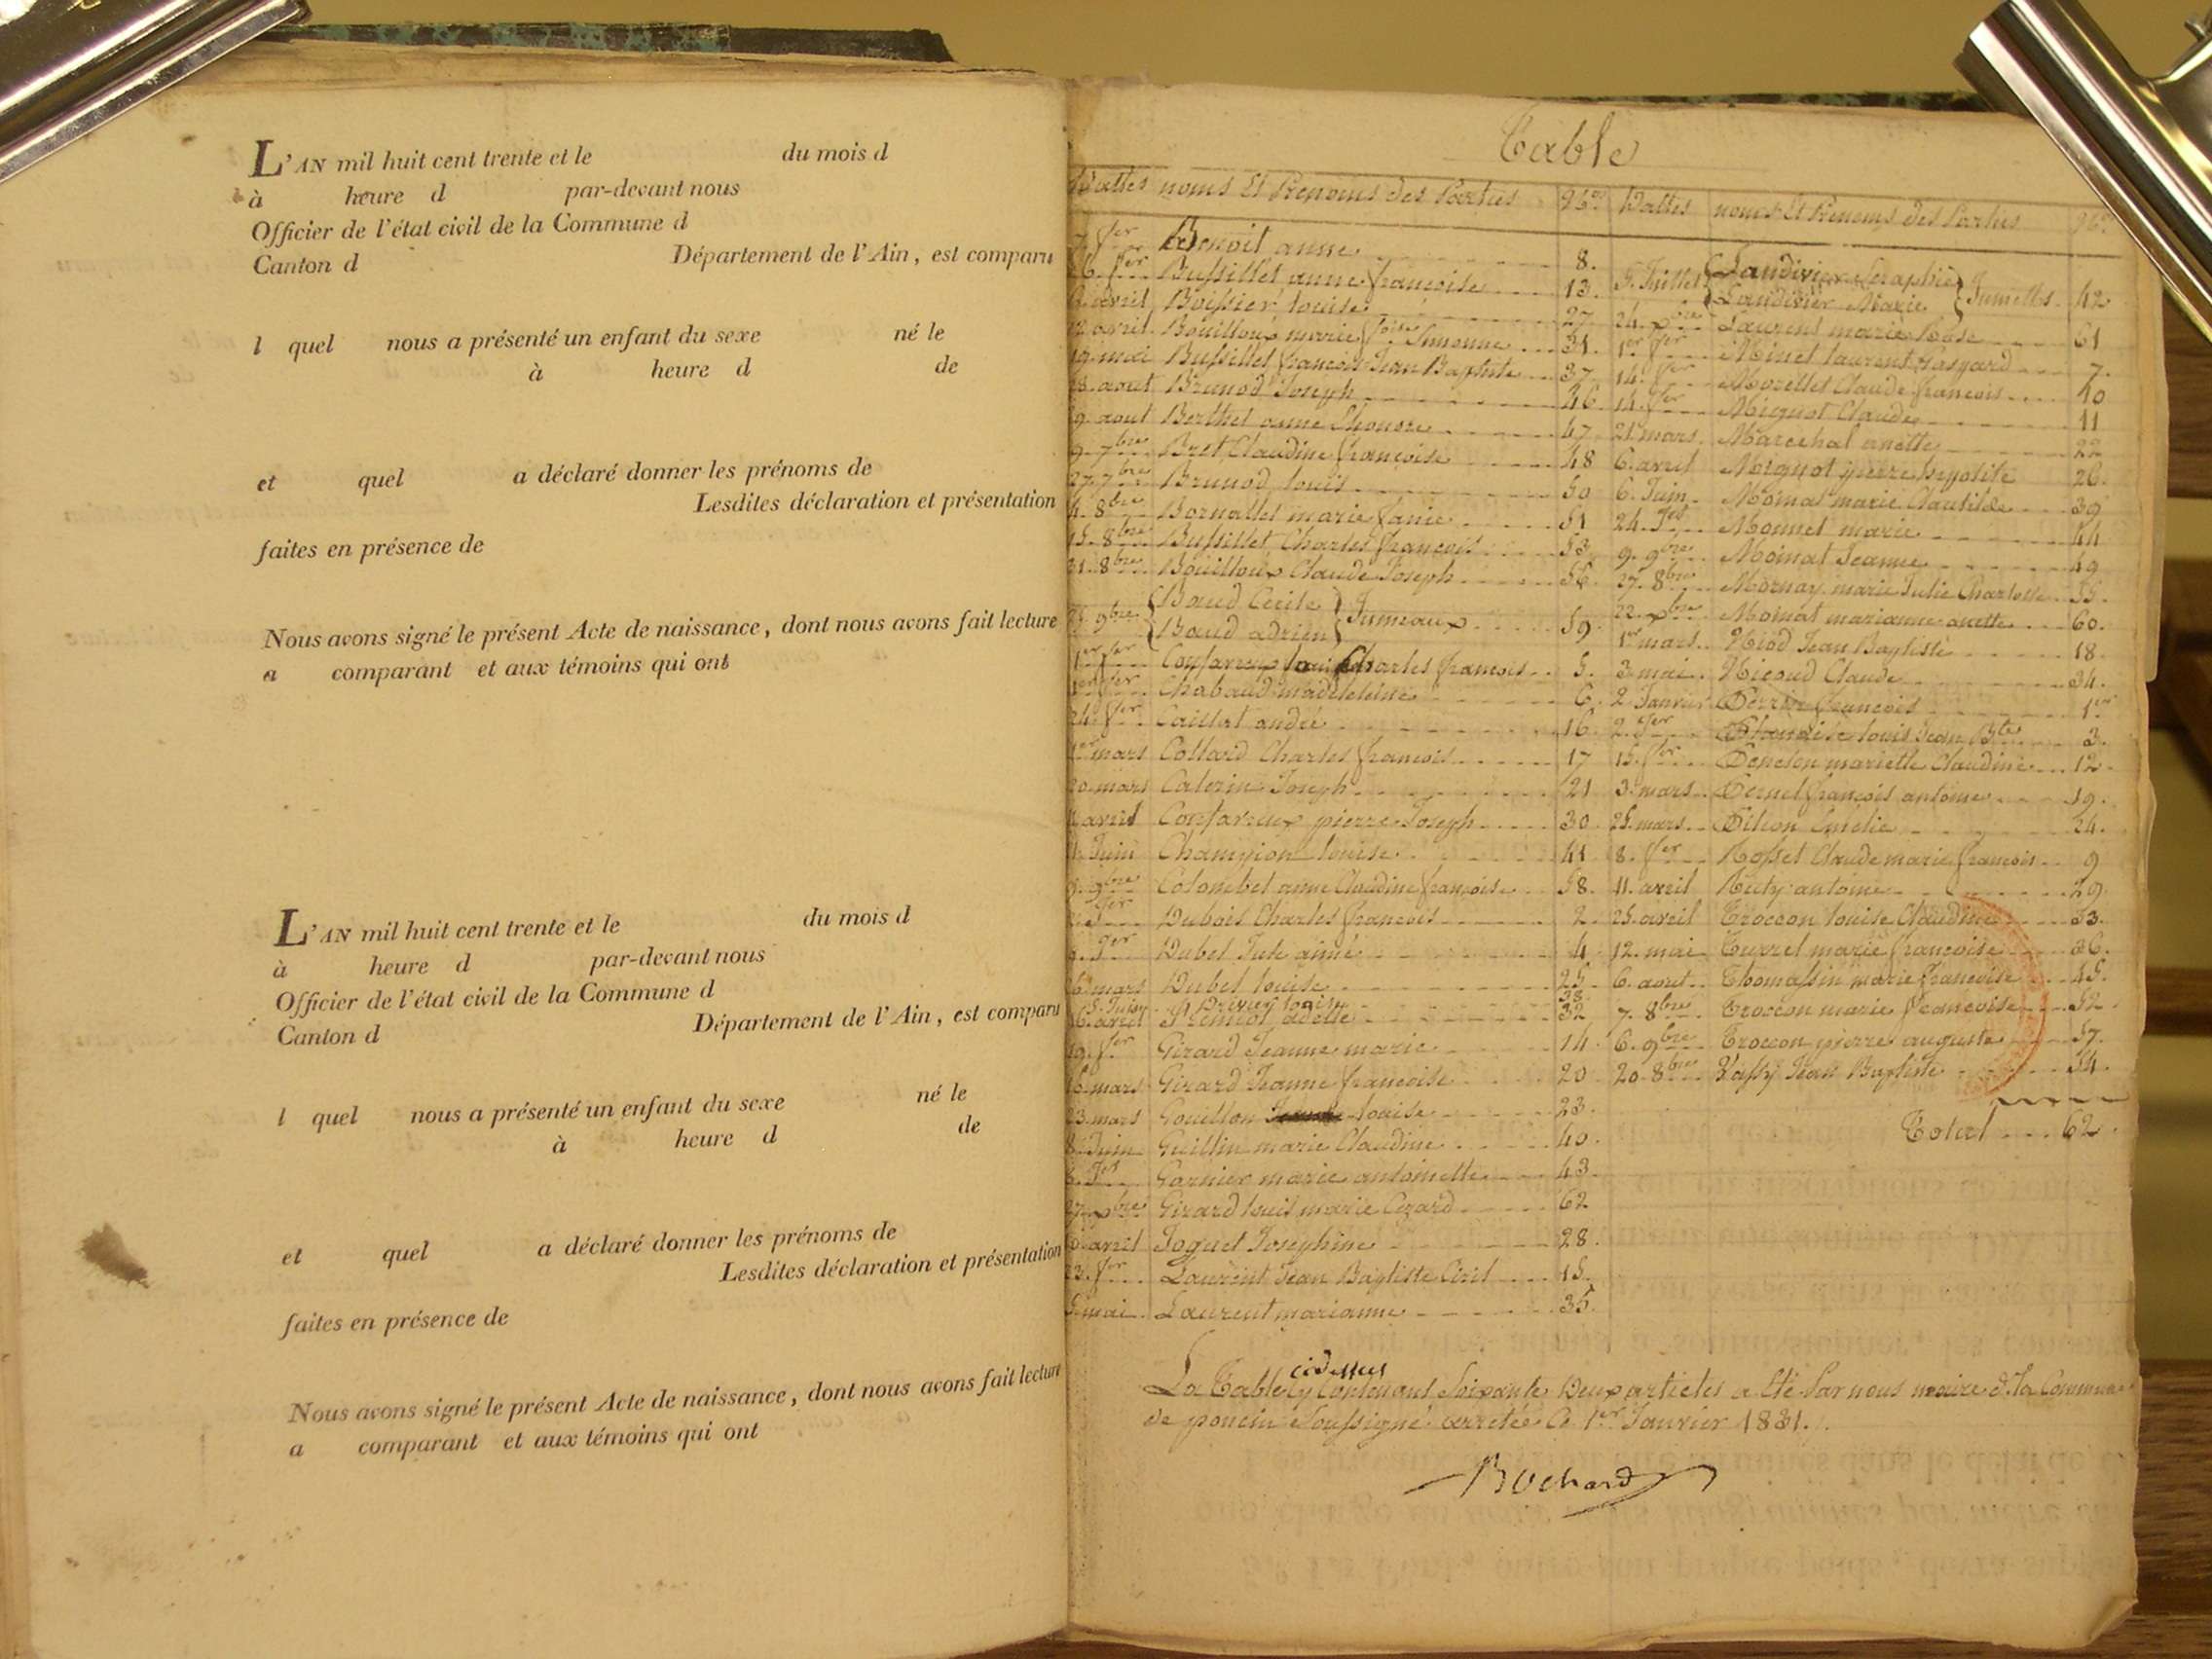 L'AN mil huit cent trente et le du mois d
à heure d par-devant nous
Officier de l'état civil de la Commune d
Canton d Département de l'Ain, est comparu
l quel nous a présenté un enfant du sexe né le
à heure d de
et quel a déclaré donner les prénoms de
Lesdites déclaration et présentation
faites en présence de
Nous avons signé le présent Acte de naissance, dont nous avons fait lecture
a comparant et aux témoins qui ont
L'AN mil huit cent trente et le du mois d
à heure d par-devant nous
Officier de l'état civil de la Commune d
Canton d Département de l'Ain, est comparu
l quel nous a présenté un enfant du sexe né le
à heure d de
et quel a déclaré donner les prénoms de
Lesdites déclaration et présentation
faites en présence de
Nous avons signé le présent Acte de naissance, dont nous avons fait lecture
a comparant et aux témoins qui ont
Table
Dattes noms Et Prenoms des Parties
fer Benoit anne 8.
fer Bussillet anne françoise 13.
avril Boissier louise 27
avril Bouilloux marie foise Simonne 31.
19. mai Bussillet françois Jean Baptiste 37
aout Brunod Joseph 46
9. aout Berthet anne 47
9. 7bre Bret Claudine françoise 48
27. 7bre Brunod louis 50
4. 8bre Bornallet marie fanie 51
15. 8bre Bussillet Charles françois 53
31. 8bre Bouilloux Claude Joseph 56
9bre Baud Cecile
Baud adrien Jumeaux 59.
1er fer Confavreux Charles françois 5.
1er fer Chabaud madeleine 6
24. fer Caillat andré 16
1er mars Collard Charles françois 17
20 mars Caterin Joseph 21
avril Confavreux pierre Joseph 30
Juin Champion louise 41
9bre Colombet anne Claudine françoise 58.
Jer Dubois Charles françois 2
Jer Dubel Jule aimé 4
mars Dubel louise 25
5. Juin Drevey louise 38
16. avril adelle 32
19. fer Girard Jeanne marie 14
mars Girard Jeanne françoise 20
23. mars Gouillon louise 23.
8. Juin Guillin marie Claudine 40.
Jet Garnier marie antoinette 43.
27. xbre Girard louis marie Cezard 62
avril Joguet Josephine 28.
23. fer Laurent Jean Baptiste Ciril 15.
mai Laurent marianne 35.
Dattes noms Et Prenoms des Parties
5. Juillet Landivier Seraphie
Landivier Marie Jumelles 42
24. xbre Laurent marie Rose 61
1er fer Minet laurent Gaspard 7.
14. fer Morellet Claude françois 10
14. fer Miguot Claude 11
21. mars Marechal anette 22
6. avril Miguot pierre hypolite 26.
6. Juin Moinat marie Clautilde 39
24. Jet Monnet marie 44
9. 9bre Moinat Jeanne 49
27. 8bre Mornay marie Julie Charlotte 55.
22. xbre Moinat marianne anette 60.
1er mars Niod Jean Baptiste 18
3. mai Nicoud Claude 34.
2. Janvier Perrin françois 1er
2. Jer louis Jean Bte 3.
15. fer Penelon mariette Claudine 12.
3. mars Pernet françois antoine 19.
25. mars Pilion Emélie 24.
8. fer Rosset Claude marie françois 9
11. avril Ruty antoine 29
25. avril Troccon louise Claudine 33.
12. mai Turrel marie françoise 36.
6. aout Thomassin marie françoise 45.
7. 8bre Troccon marie françoise 52
6. 9bre Troccon pierre auguste 57.
20. 8bre Vassy Jean Baptiste 54.
Total 62.
La Table cidessus Contenant Soixante Deux articles a Eté Par nous maire de la Commune
de poncin Soussigné arretée Ce 1er Janvier 1831.
Bochard